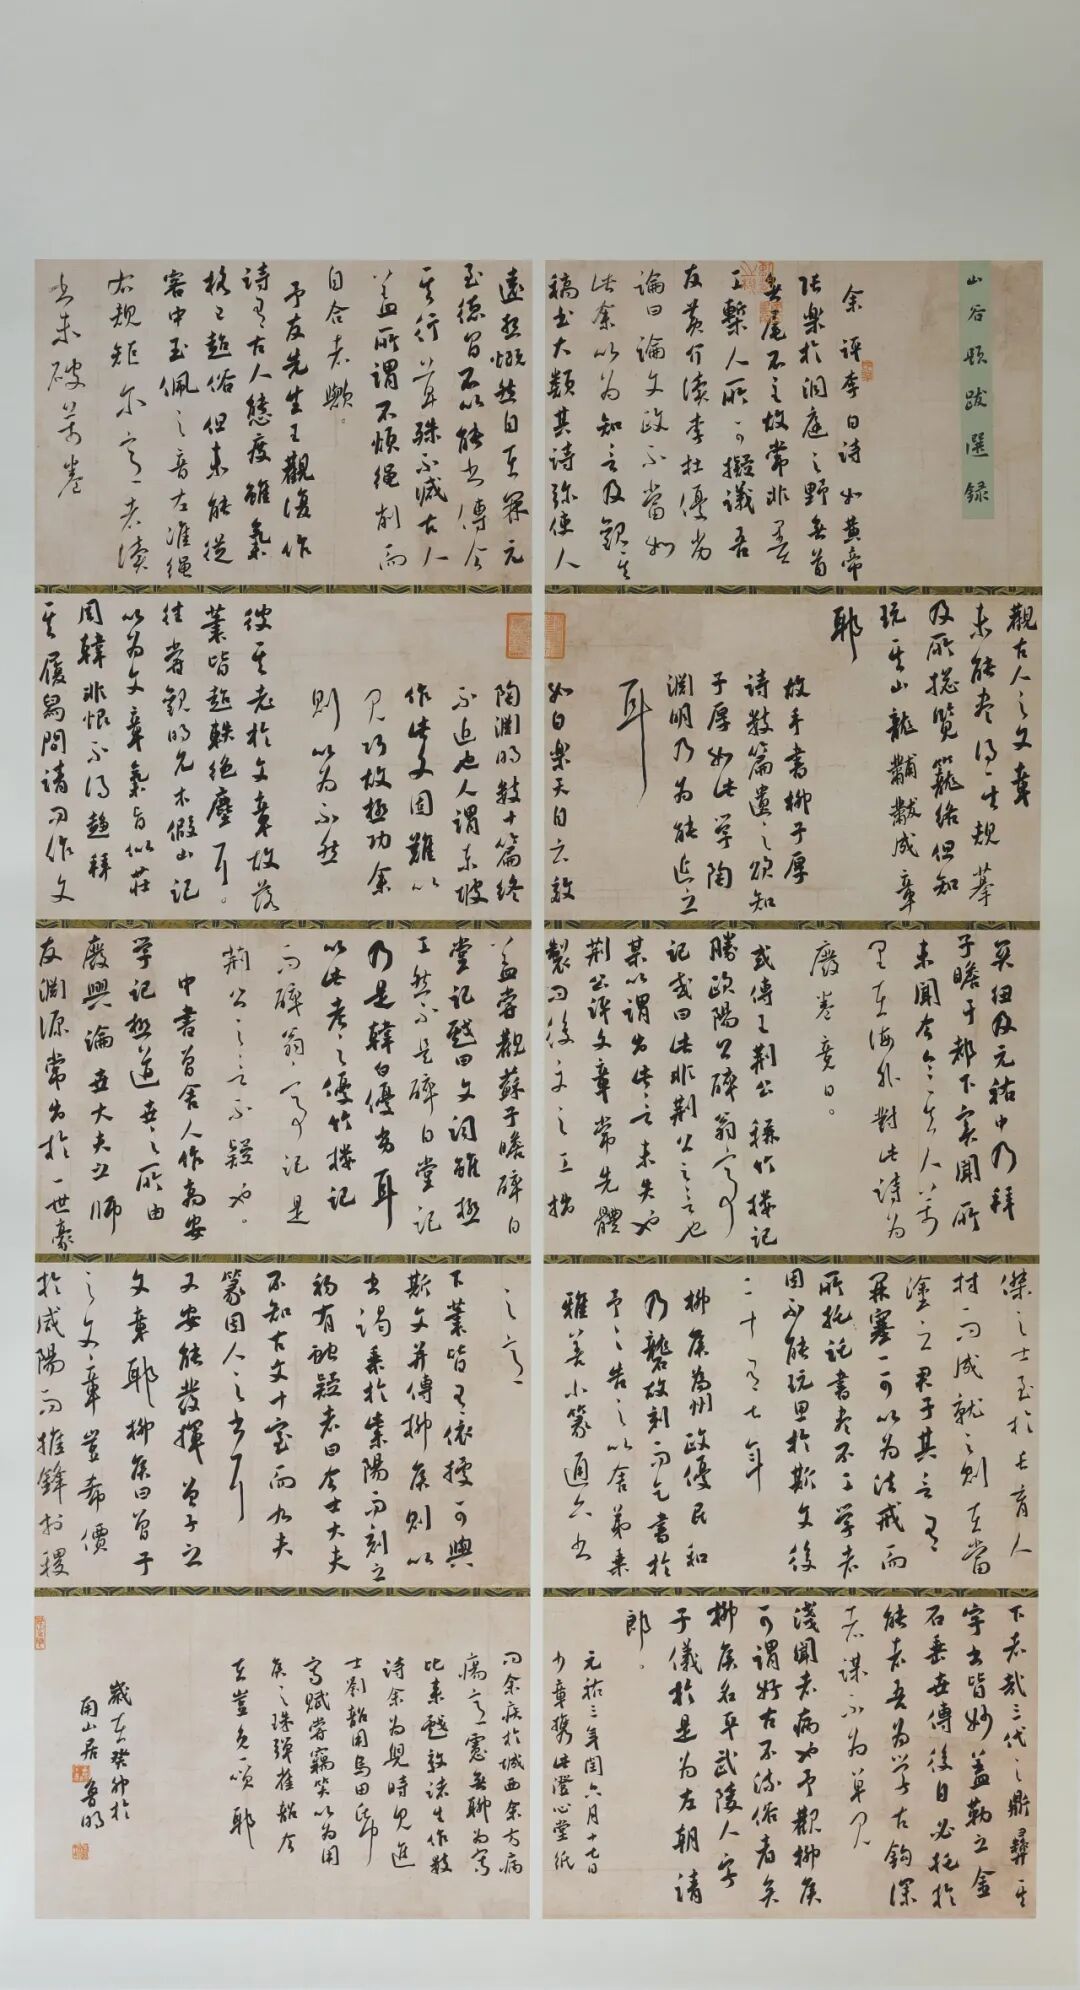 山谷題跋選録
余評李白詩如黄帝
張樂於洞庭之野無首
無尾不主故常非墨
工槧人所可擬議吾
友黄介读李杜優劣
論曰論文政不當如
此余以為知言及観其
稿书大類其詩弥使人
遠想慨然白在開元
至德間不以能书傳今
其行草殊不减古人
蓋所謂不煩繩削而
自合者歟。
予友先生王觀復作
詩有古人態度雖氣
格已超俗但未能從
容中玉佩之音左準繩
右規矩尔意者读
书未破萬卷
觀古人之文章
未能盡得其規摹
及所揔覽籠絡但知
玩其山龍黼黻成章
耶
故手書柳子厚
詩數篇遺之欲知
子厚如此学陶
淵明乃為能近之
耳
如白樂天自云效
陶淵明數十篇終
不近也人謂東坡
作此文因難以
見巧故極功余
則以為不然
彼其老於文章故落
筆皆超軼絶塵耳。
往嘗觀明允木假山記
以為文章氣旨似莊
周韓非恨不得趨拜
其履舄間請問作文
關紐及元祐中乃拜
子瞻于都下實聞所
未聞今其人萬
里在海外對此詩為
廢卷竟日。
或傳王荆公稱竹楼記
勝歐陽公醉翁亭
記或曰此非荆公之言也
某以謂出此言未失也
荆公評文章常先體
製而後文之工拙
蓋嘗觀蘇子瞻醉白
堂記戲曰文詞雖極
工然不是醉白堂記
乃是韓白優劣耳
以此考之優竹楼記
而醉翁亭記是
荆公之言不疑也。
中書曾舍人作高安
学記極道世之所由
廢興論士大夫之師
友淵源常出於一世豪
傑之士至於長育人
材而成就之則在當
塗之君子其言有
開塞可以為法戒而
所託書盡不工学者
因不能玩思於斯文後
二十有七年
柳侯為州政優民和
乃礱故刻而乞書於
予予告之以舍弟乘
雅善小篆通六书
之意
下筆皆有依據可與
斯文并傳柳侯則以
书谒乘於紫陽而刻之
初有難疑者曰今士大夫
不知古文十室而九夫
篆固人之书耳
又安能發揮曾子之
文章耶柳侯曰曾子
之文章豈希價
於咸陽而推鋒於稷
下者哉三代之鼎彝其
字书皆妙蓋勒之金
石垂世傳後自必托於
能者吾為学古鈎深
者謀不為单見
淺聞者病也予觀柳侯
可謂好古不流俗者矣
柳侯名平武陵人字
子儀於是為左朝請
郎。
元祐三年閏六月十七日
少章携此澄心堂紙
問余疾於城西余方病
瘍意慮無聊為寫
比來戲效諸生作數
詩余為兒時見進
士劉韶用馬田
賦嘗竊笑以為用
侯之珠彈雀韶今
在豈免一頌耶
歲在癸卯於
山居魯明